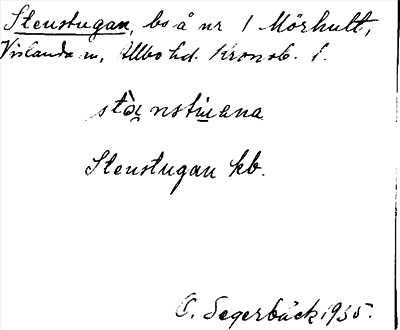 Stenstugan, bs å nr 1 Mörhult,
Vislanda sn, Allbo hd. Kronob. l.
Stenstugan kb.
O. Segerbäck 1935.